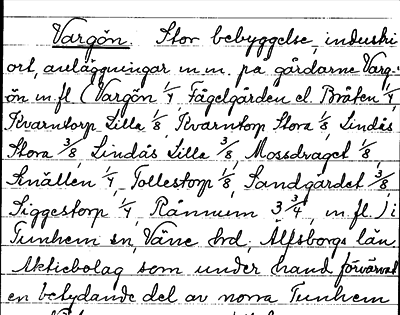 Vargön. Stor bebyggelse, industri
ort, anläggningar m.m. på gårdarne Varg-
ön m.fl (Vargön 1/4, Fägelgården el. Bråten 1/4,
Kvarntorp Lilla 1/8, Kvarntorp Stora 1/8, Lindås
Stora 3/8, Lindås Lilla 3/8, Mossdraget 1/8,
Snällen 1/4, Tollestorp 1/8, Sandgärdet 3/8,
Siggestorp 1/4, Rånnum 3 3/4, m.fl.) i
Tunhem sn, Väne hrd, Älfsborgs län.
Aktiebolag som under hand förvärvat
en betydande del av norra Tunhem